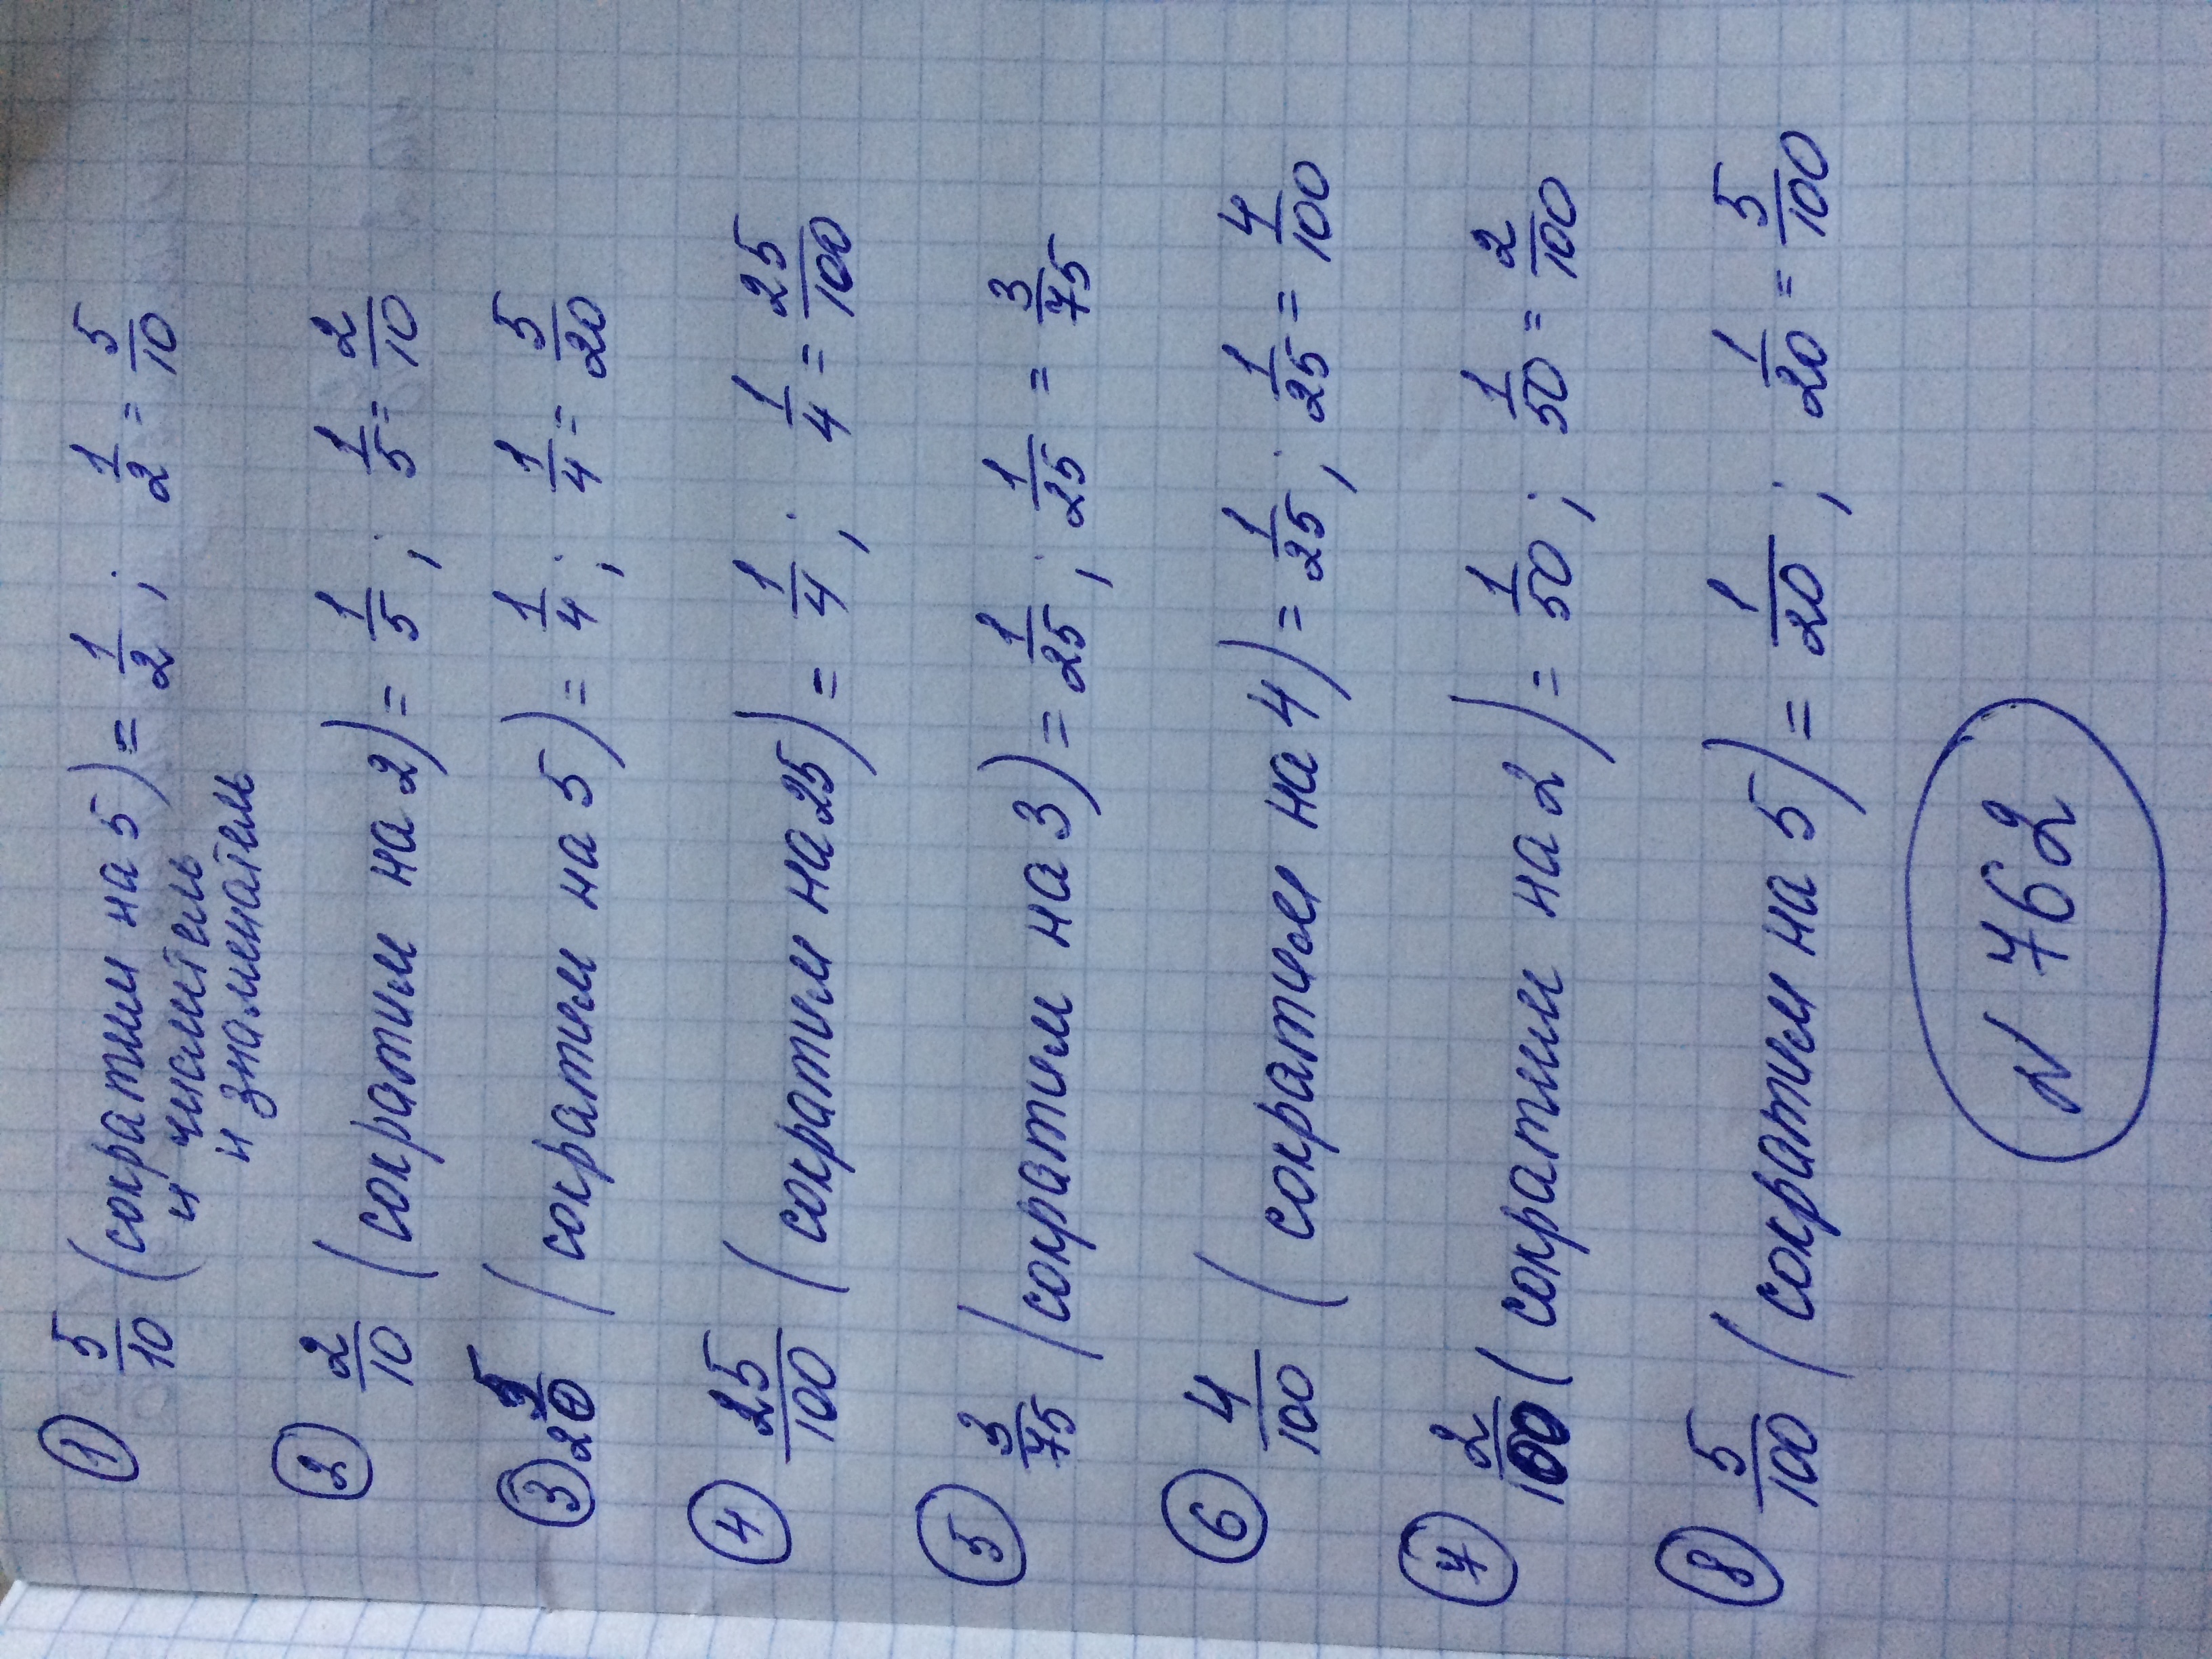 ① 5/10 (сократим на 5) = 1/2 ; 1/2 = 5/10
и числитель
и знаменатель
② 2/10 (сократим на 2) = 1/5 ; 1/5 = 2/10
③ 5/20 (сократим на 5) = 1/4 ; 1/4 = 5/20
④ 25/100 (сократим на 25) = 1/4 ; 1/4 = 25/100
⑤ 3/75 (сократим на 3) = 1/25 ; 1/25 = 3/75
⑥ 4/100 (сократим на 4) = 1/25 ; 1/25 = 4/100
⑦ 2/100 (сократим на 2) = 1/50 ; 1/50 = 2/100
⑧ 5/100 (сократим на 5) = 1/20 ; 1/20 = 5/100
N 762